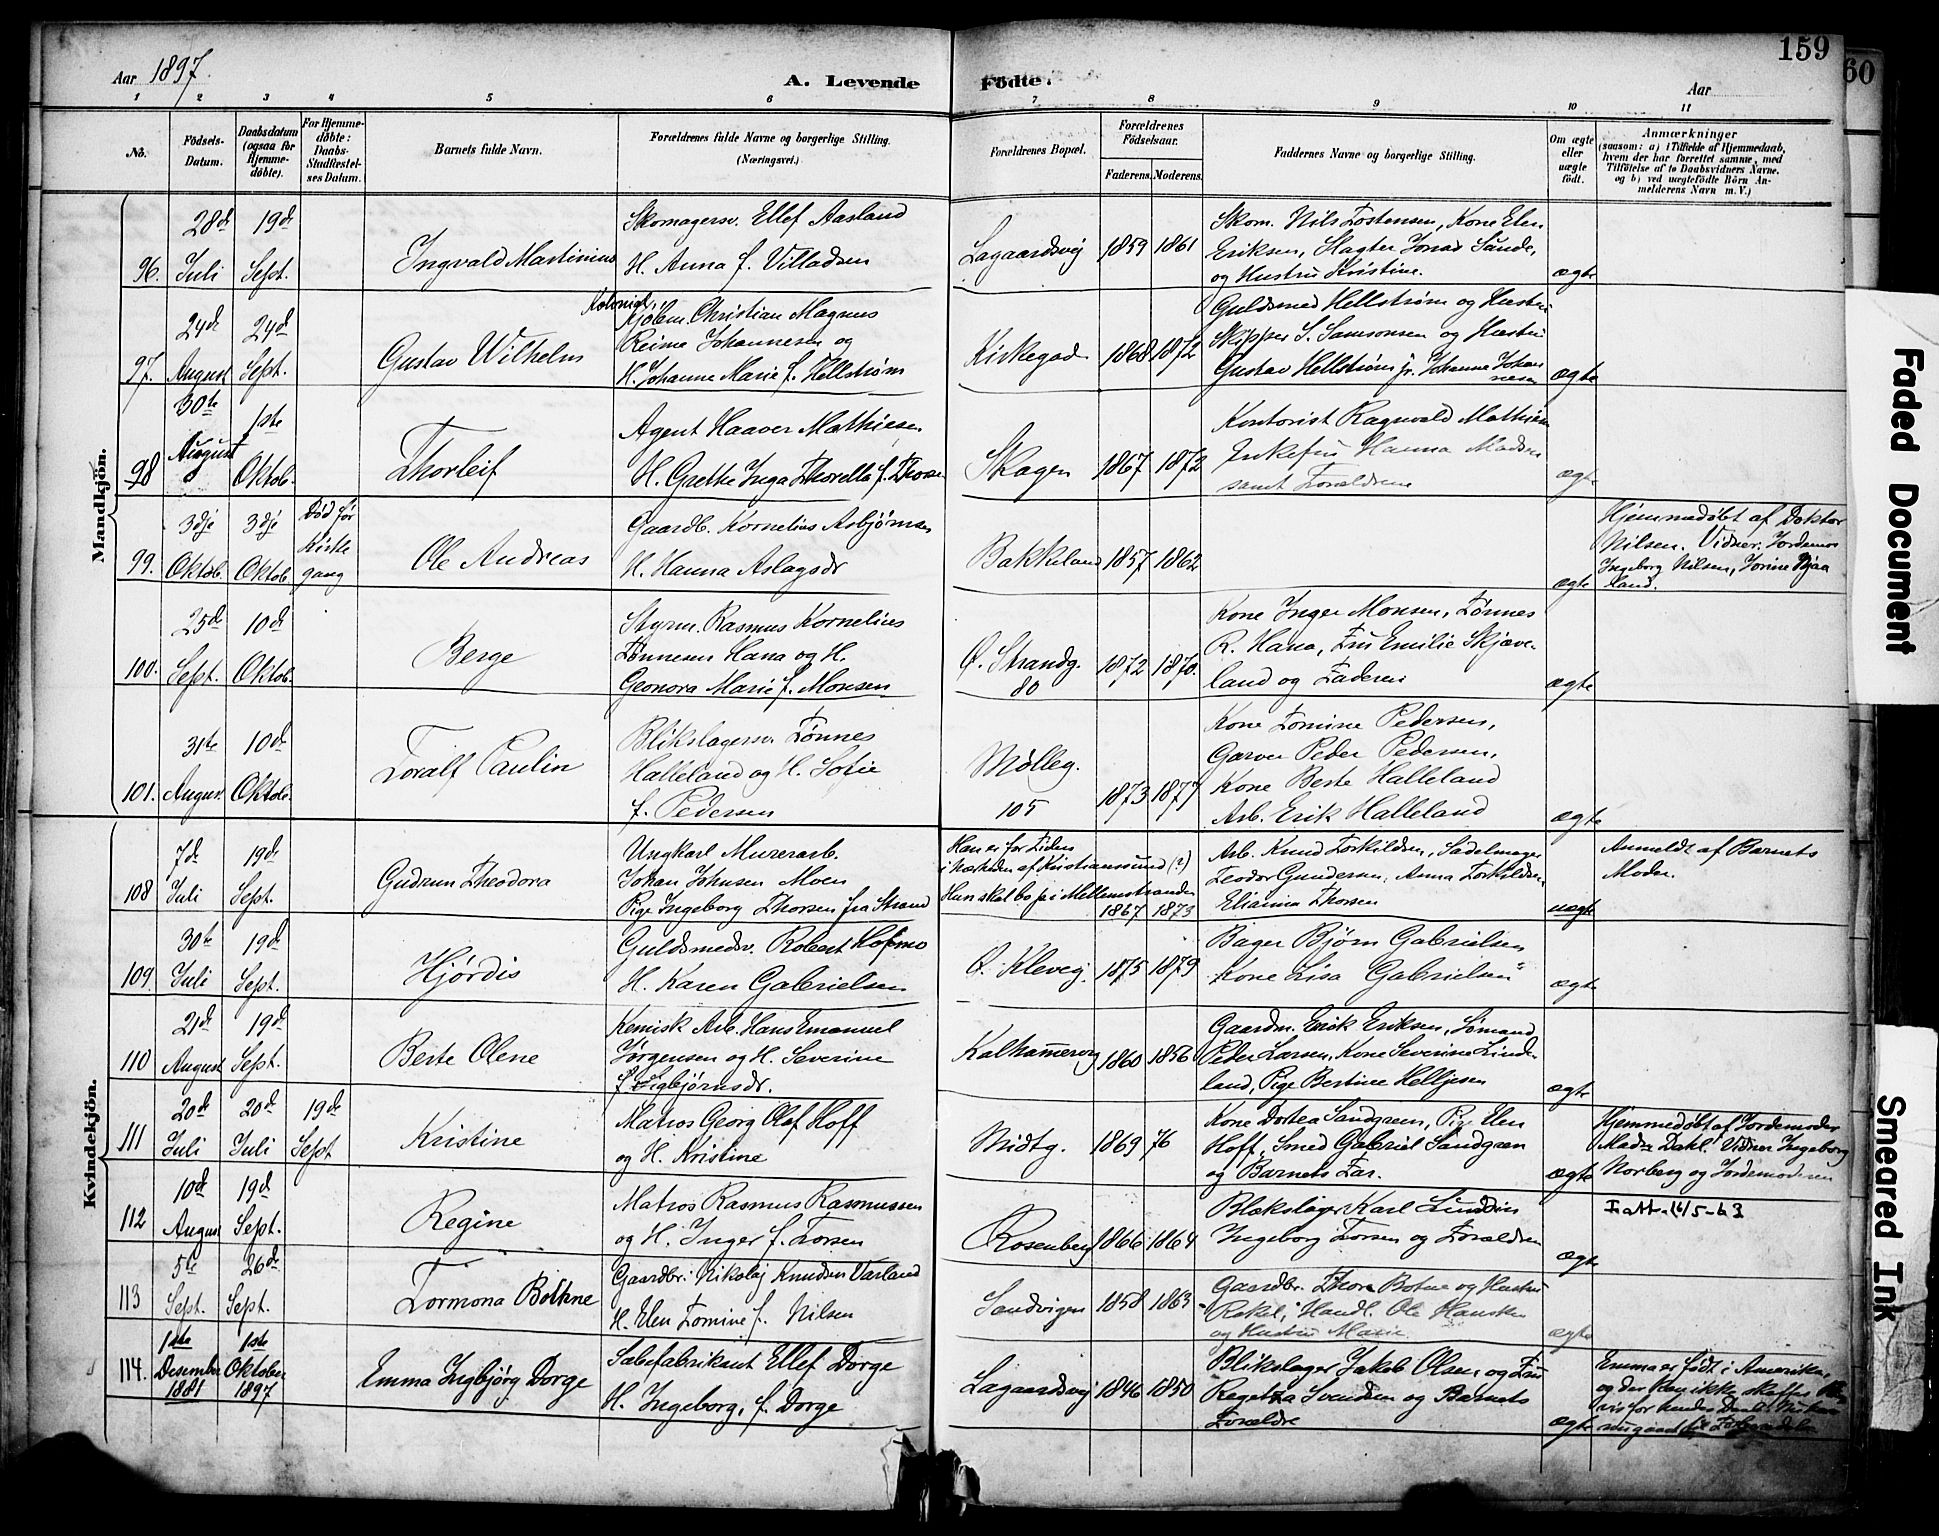 159
60
Aar 1897.
A. Levende Födte.
Aar
1 2 3 4 5 6 7 8 9 10 11
No.
Födsels-Datum.
Daabsdatum (ogsaa for Hjemme-döbte).
For Hjemme-döbte: Daabs-Stadfæstel-ses Datum.
Barnets fulde Navn.
Forældrenes fulde Navne og borgerlige Stilling. (Næringsvei.)
Forældrenes Bopæl.
Forældrenes Födselsaar.
Faderens. Moderens.
Faddernes Navne og borgerlige Stilling.
Om ægte eller uægte födt.
Anmærkninger
(saasom: a) i Tilfælde af Hjemmedaab,
hvem der har forrettet samme, med
Tilföielse af to Daabsvidners Navne.
og b) ved uægtefödte Börn An-
melderens Navn m. V.)
Mandkjön.
96. 28de Juli 19de Sept.
Ingvald Martinius
Skomagersv. Ellef Aasland
H. Anna f. Villadsen
Lagaardsvej 1859 1861
Skom. Nils Tostensen, Kone Elen
Eriksen, Slagter Jonas Sunde,
og Hustru Kristine.
ægte
97. 24de August 24de Sept.
Gustav Wilhelm
Kolonial
Kjöbm. Christian Magnus
Reime Johannesen og
H. Johanne Marie f. Hellstrøm
Kirkegad. 1868 1872
Guldsmed Hellstrøm og Hustru
Skipper S. Samsonsen og Hustru
Gustav Hellstrøm jr. Johanne Johan
nesen
ægte
98 30te August 1ste Oktob.
Thorleif
Agent Haaver Mathiesen
H. Grethe Inga Thorella f. Thorsen
Skagen 1867 1872
Kontorist Ragnvald Mathiesen
Enkefru Hanna Madsen
samt Forældrene
ægte
99. 3dje Oktob. 3dje Oktob. Død før Kirke gang
Ole Andreas
Gaardb. Kornelius Asbjørnsen
H. Hanna Aslagsdr
Bakkeland 1857 1862
ægte
Hjemmedøbt af Doktor
Nilsen. Vidner: Jordemor
Ingeborg Nilsen, Jorine
land.
100. 25de Sept. 10de Oktob.
Berge
Styrm. Rasmus Kornelius
Tønnesen Hana og H.
Geonora Marie f. Monsen
Ø. Strandg. 80 1872 1870.
Kone Inger Monsen, Tønnes
R. Hana, Fru Emilie Skjæve-
land og Faderen
ægte
101. 31te August 10de Oktob.
Toralf Paulin
Blikslagersv Tønnes
Halleland og H. Sofie
f. Pedersen
Mølleg. 105 1873 1877
Kone Tomine Pedersen,
Garver Peder Pedersen,
Kone Berte Halleland
Arb. Erik Halleland
ægte
Kvindekjön.
108 7de Juli 19de Sept.
Gudrun Theodora
Ungkarl Murerarb.
Johan Johnsen Moen
Pige Ingeborg Thorsen fra Strand
Han er for Tiden
i nærheden af Kristianssund (?)
Hun skal bo på Mellemstranden
1867 1873
Arb. Knud Torkildsen, Sadelmager
Teodor Gundersen, Anna Torkildsen
Elianna Thorsen
uægte
Anmeldt af Barnets
Moder.
109 30te Juli 19de Sept.
Hjørdis
Guldsmedsv. Robert Hofmo
H. Karen Gabrielsen
Ø. Klevej. 1875 1879
Bager Bjørn Gabrielsen
Kone Lisa Gabrielsen
ægte
110 21de August 19de Sept.
Berte Olene
Kemisk Arb. Hans Emanuel
Jørgensen og H. Severine
f. Sigbjørnsdr.
Kalhammervg 1860 1856
Gaardm. Erik Eriksen, Sømand
Peder Larsen, Kone Severine Linde-
land, Pige Bertine Helljesen
ægte
111 20de Juli 20de Juli 19de Sept
Kristine
Matros Georg Olaf Hoff
og H. Kristine
Midtg. 1869 76
Kone Dortea Sandgren, Pige Elen
Hoff, Smed Gabriel Sandgren
og Barnets Far.
ægte
Hjemmedøbt af Jordemoder
Madm Dahl. Vidner Ingeborg
Norberg og Jordemoderen
112 10de August 19de Sept.
Regine
Matros Rasmus Rasmussen
og H. Inger f. Torsen
Rosenberg 1866 1864
Blekslager Karl Lunddin
Ingeborg Torsen og Forældren
ægte
Fatt. 16/5-63
113 5te Sept. 26de Sept.
Tormona Bothne
Gaardbr. Nikolaj Knudsen Varland
H. Elen Tomine f. Nilsen
Sandvigen 1858 1863
Gaardbr. Thore Botne og Hustru
Rakel, Handl. Ole Hansken
og Hustru Marie
ægte
114. 1ste Desember 1881 1ste Oktober 1897
Emma Ingbjørg Dorge
Sæbefabrikant Ellef Dorge
H. Ingeborg, f. Dorge
Lagaardsvej 1846 1850
Blikslager Jakob Olsen og Fru
Regetza Svendsen og Barnets
Forældre
ægte
Emma er født i Amerika,
og der kan ikke skaffes
vis for hendes Daab.
Faded Document
Smeared Ink